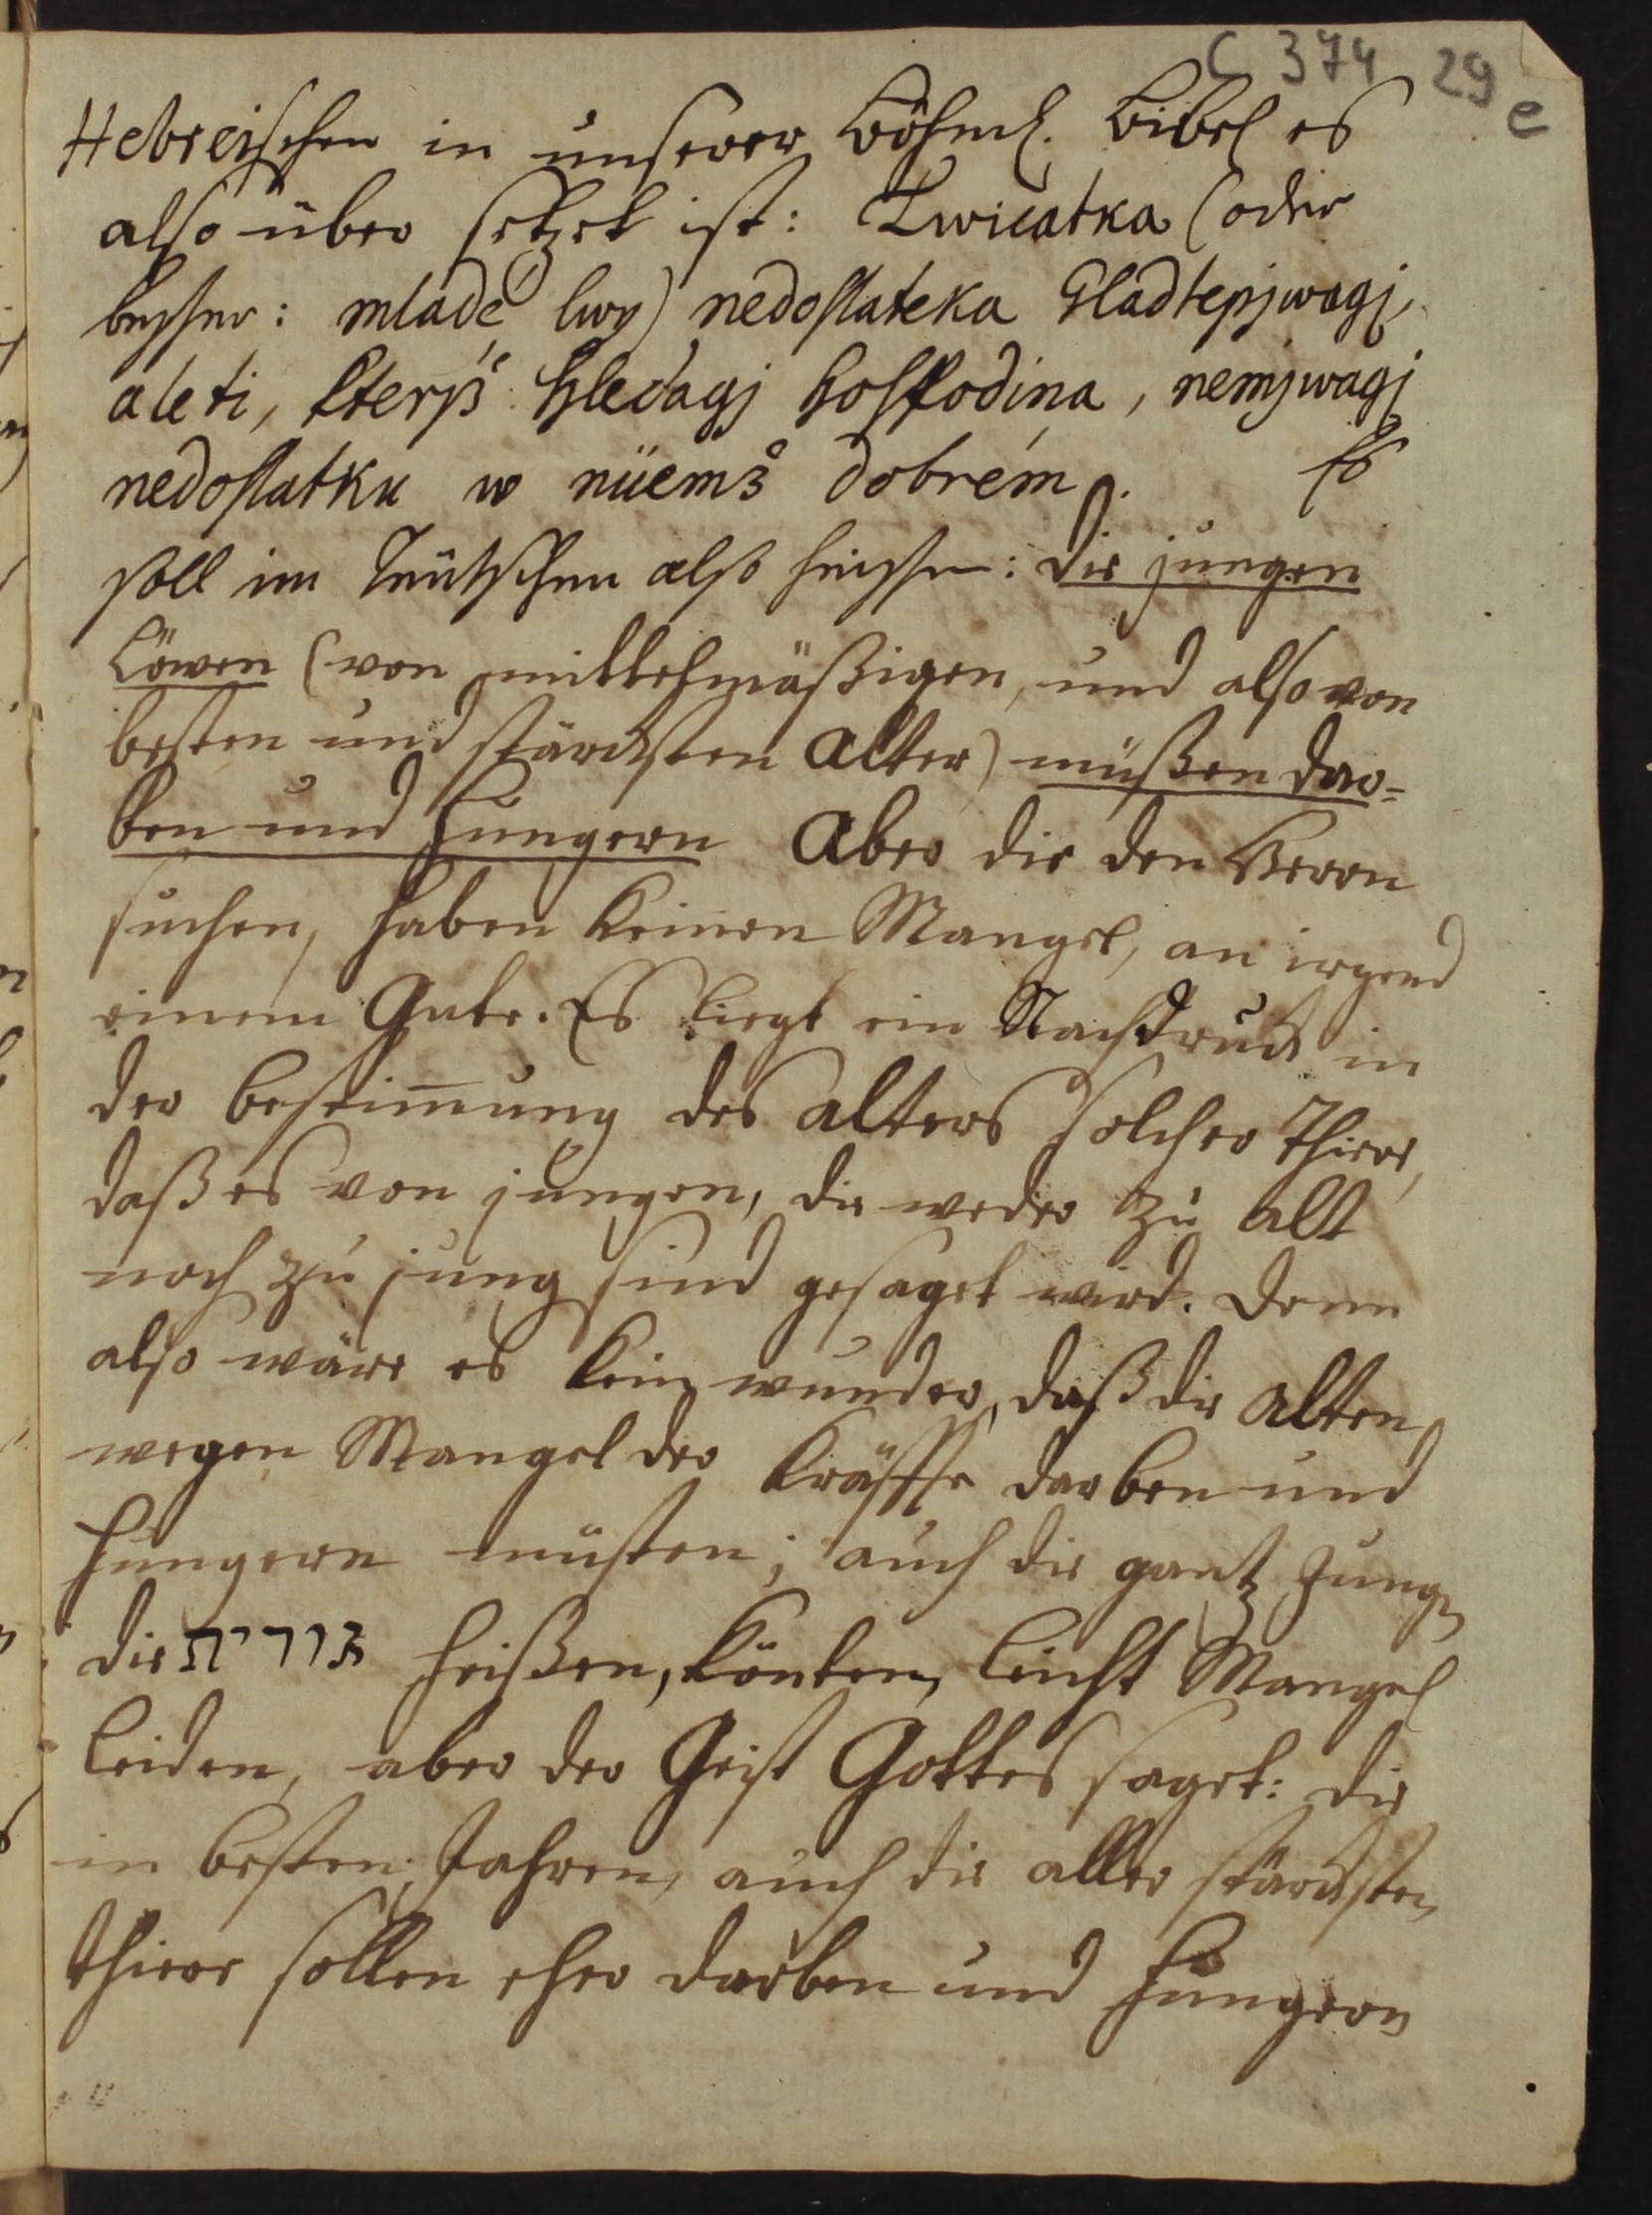 C 374 29
e
Hebreischen in unserer Böhmisch. Bibel es
also über setzet ist: Lwicatka (oder
besser: mladé lwy) nedostateka hladtepjwagj,
aleti, kterjž hledagj Hospodina, nemjwagj
nedostatku w nüems dobrém. Es
soll im Teütschen also heissen: Die jungen
Löwen (von mittelmäßigen, und also von
besten und stärcksten Alter) müßen dar=
ben und hungern Aber die den Herrn
suchen, haben keinen Mangel, an irgend
einem Gute. Es liegt ein Nachdruck in
der bestim̅ung des alters solcher Thiere,
daß es von jungen, die weder zu alt
noch zu jung sind gesaget wird. Denn
also wäre es kein wunder, daß die alten
wegen Mangel der Kräffte darben und
hungern müsten; auch die gantz Junge
die heißen, könten leicht Mangel
leiden, aber der Geist Gottes saget: die
in besten Jahren, auch die aller stärcksten
thiere sollen eher darben und hungern